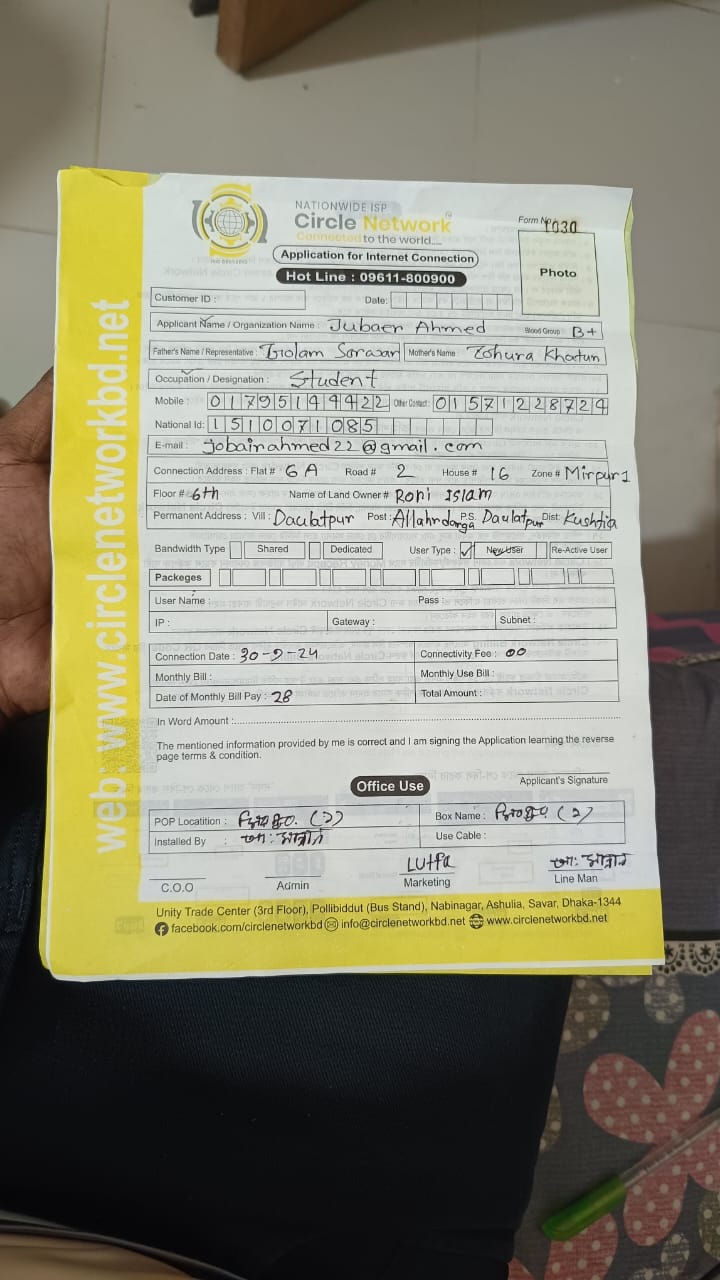 NATIONWIDE ISP
Circle Network
Connected to the world....
Form No 1030
Application for Internet Connection
Hot Line : 09611-800900
Photo
Customer ID :
Date:
Applicant Name / Organization Name : Jubaer Ahmed Blood Group : B+
Father's Name / Representative : Golam Sorawar Mother's Name : Zohura Khatun
Occupation / Designation : Student
Mobile : 01795149422 Other Contact: 01571228724
National Id: 1510071085
E-mail : jobairahmed22@gmail.com
Connection Address : Flat # 6A Road # 2 House # 16 Zone # Mirpur 1
Floor # 6th Name of Land Owner # Roni Islam
Permanent Address : Vill : Daulatpur Post : Allahrdarga P.S. Daulatpur Dist: Kushtia
Bandwidth Type Shared Dedicated User Type : ✓ New User Re-Active User
Packeges
User Name : Pass :
IP : Gateway : Subnet :
Connection Date : 30-9-24 Connectivity Fee : 00
Monthly Bill : Monthly Use Bill :
Date of Monthly Bill Pay : 28 Total Amount :
In Word Amount :
The mentioned information provided by me is correct and I am signing the Application learning the reverse
page terms & condition.
Applicant's Signature
Office Use
POP Locatition : (২) Box Name : (২)
Installed By : মান্নান Use Cable :
Lutfa মান্নান
C.O.O Admin Marketing Line Man
Unity Trade Center (3rd Floor), Pollibiddut (Bus Stand), Nabinagar, Ashulia, Savar, Dhaka-1344
facebook.com/circlenetworkbd info@circlenetworkbd.net www.circlenetworkbd.net
web: www.circlenetworkbd.net